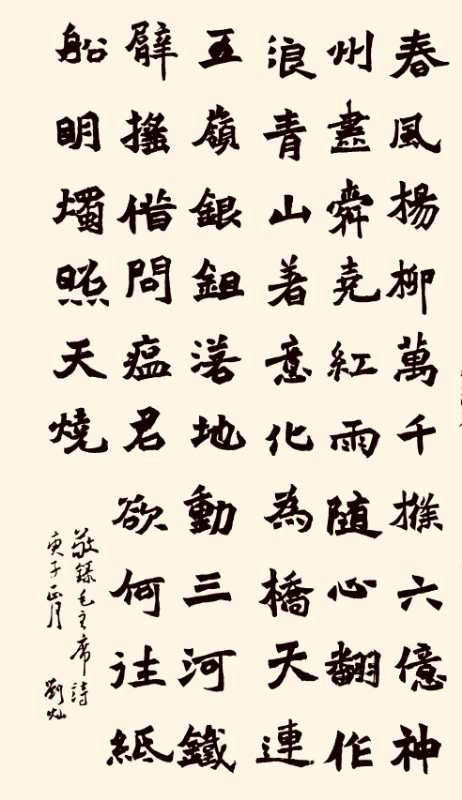 春風楊柳萬千條六億神
州盡舜堯紅雨随心翻作
浪青山着意化為橋天連
五嶺銀鉏落地動三河鐵
臂搖借問瘟君欲何往紙
船明燭照天燒
敬錄毛主席詩
庚子正月 劉灿